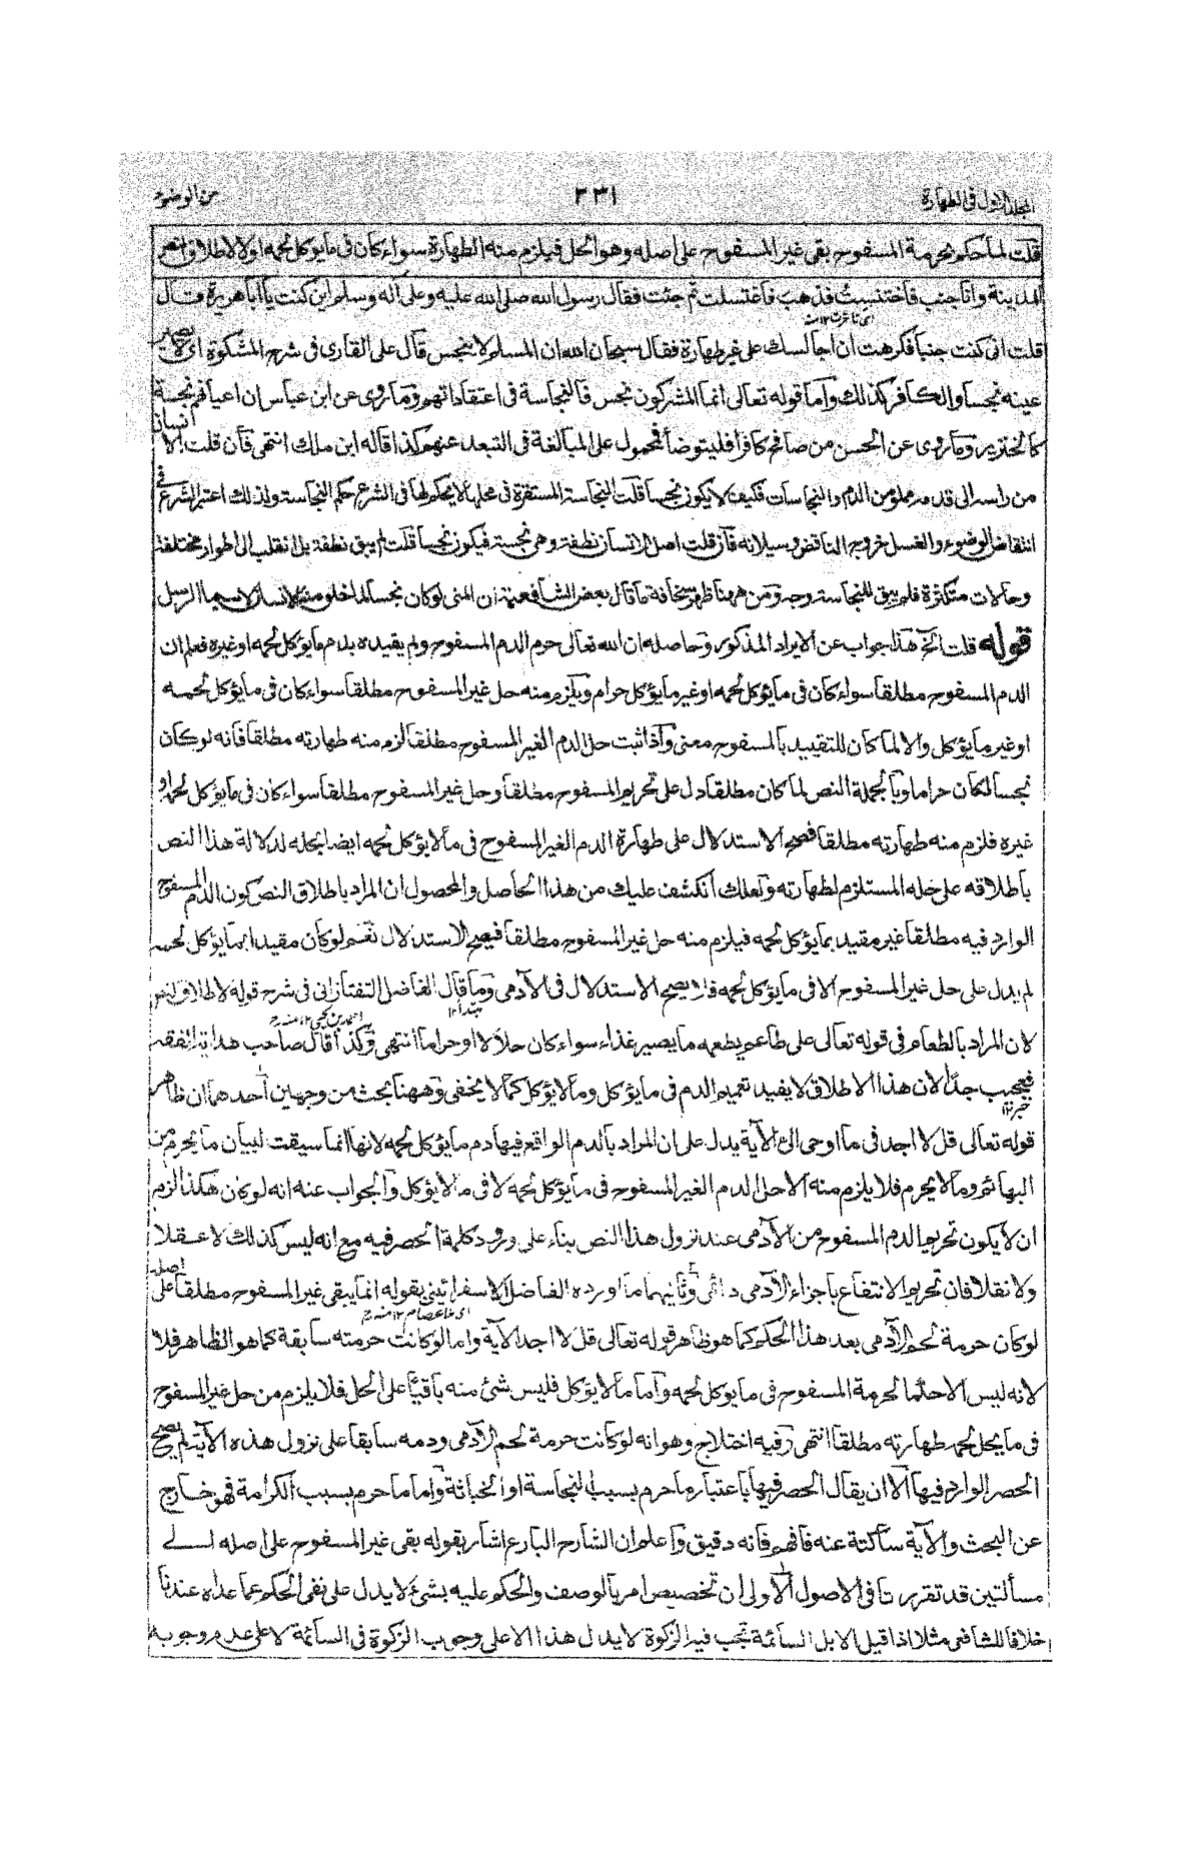 المجلد الاول فى الطهارة ٢٣١ من الوضوء
قلت لما حكم بحرمة المسفوح بقى غير المسفوح على اصله وهو الحل فيلزم منه الطهارة سواء كان فى ما يوكل لحمه او لا لاطلاق النص
المدينة وانا جنب فاختنست فذهب فاغتسلت ثم جئت فقال رسول الله صلى الله عليه وعلى آله وسلم اين كنت يا ابا هريرة فقال
اى تاخرت ١٢ منه
قلت انى كنت جنبا فكرهت ان اجالسك على غير طهارة فقال سبحان الله ان المسلم لا ينجس قال على القارى فى شرح المشكوة اى لا يصير
عينه نجسا والكافر كذلك واما قوله تعالى انما المشركون نجس فالنجاسة فى اعتقاداتهم وما روى عن ابن عباس ان اعيانهم نجسة
كالخنزير وما روى عن الحسن من صافح كافرا فليتوضأ فمحمول على المبالغة فى التبعد عنهم كذا قاله ابن ملك انتهى فان قلت الانسان
من راسه الى قدمه مملو من الدم والنجاسات فكيف لا يكون نجسا قلت النجاسة المستقرة فى محلها لا يحكم لها فى الشرع حكم النجاسة ولذلك اعتبر الشرع فى
انتقاض الوضوء والغسل خروج الناقض وسيلانه فان قلت اصل الانسان نطفة وهى نجسة فيكون نجسا قلت لم يبق نطفة بل انقلب الى اطوار مختلفة
وحالات متكثرة فلم يبق للنجاسة وجه ومن ههنا ظهر سخافة ما قال بعض الشافعية ان المنى لو كان نجسا لما خلق منه الانسان لا سيما الرسل
قوله قلت الخ هذا جواب عن الايراد المذكور وحاصله ان الله تعالى حرم الدم المسفوح ولم يقيده بدم ما يؤكل لحمه او غيره فعلم ان
الدم المسفوح مطلقا سواء كان فى ما يؤكل لحمه او غير ما يؤكل حرام ويلزم منه حل غير المسفوح مطلقا سواء كان فى ما يؤكل لحمه
او غير ما يؤكل والا لما كان للتقييد بالمسفوح معنى واذا ثبت حل الدم الغير المسفوح مطلقا لزم منه طهارته مطلقا فانه لو كان
نجسا لكان حراما وبالجملة النص لما كان مطلقا دل على تحريم المسفوح مطلقا وحل غير المسفوح مطلقا سواء كان فى ما يؤكل لحمه او
غيره فلزم منه طهارته مطلقا فصح الاستدلال على طهارة الدم الغير المسفوح فى ما لا يؤكل لحمه ايضا بحله لدلالة هذا النص
باطلاقه على حله المستلزم لطهارته ولعلك انكشف عليك من هذا الحاصل والمحصول ان المراد باطلاق النص كون الدم المسفوح
الوارد فيه مطلقا غير مقيد بما يؤكل لحمه فيلزم منه حل غير المسفوح مطلقا فيصح الاستدلال نعم لو كان مقيدا بما يؤكل لحمه
لم يدل على حل غير المسفوح الا فى ما يؤكل لحمه فلا يصح الاستدلال فى الآدمى وما قال الفاضل التفتازانى فى شرح قوله لاطلاق النص
مبتدأ ١٢ احمد بن يحيى ١٢ منه
لان المراد بالطعام فى قوله تعالى على طاعم يطعمه ما يصير غذاء سواء كان حلالا او حراما انتهى وكذا قال صاحب هداية الفقه
فعجيب جدا لان هذا الاطلاق لا يفيد تعميم الدم فى ما يؤكل وما لا يؤكل كما لا يخفى وههنا بحث من وجهين احدهما ان ظاهر
خبر ١٢
قوله تعالى قل لا اجد فى ما اوحى الى الآية يدل على ان المراد بالدم الواقع فيها دم ما يؤكل لحمه لانها انما سيقت لبيان ما يحرم من
البهائم وما لا يحرم فلا يلزم منه الا حل الدم الغير المسفوح فى ما يؤكل لحمه لا فى ما لا يؤكل والجواب عنه انه لو كان هكذا لزم
ان لا يكون تحريم الدم المسفوح من الآدمى عند نزول هذا النص بناء على ورود كلمة الحصر فيه مع انه ليس كذلك لا عقلا
ولا نقلا فان تحريم الانتفاع باجزاء الآدمى دائمى وثانيهما ما اورده الفاضل الاسفرائينى بقوله انما يبقى غير المسفوح مطلقا على اصله
اى ملا عصام ١٢ منه
لو كان حرمة لحم الآدمى بعد هذا الحكم كما هو ظاهر قوله تعالى قل لا اجد الآية واما لو كانت حرمته سابقة كما هو الظاهر فلا
لانه ليس الا حكما لحرمة المسفوح فى ما يوكل لحمه واما ما لا يؤكل فليس شئ منه باقيا على الحل فلا يلزم من حل غير المسفوح
فى ما يحل لحمه طهارته مطلقا انتهى وفيه اختلاج وهو انه لو كانت حرمة لحم الآدمى ودمه سابقا على نزول هذه الآية لم يصح
الحصر الوارد فيها الا ان يقال الحصر فيها باعتبار ما حرم بسبب النجاسة او الخباثة واما ما حرم بسبب الكرامة فهو خارج
عن البحث والآية ساكتة عنه فافهم فانه دقيق واعلم ان الشارح البارع اشار بقوله بقى غير المسفوح على اصله الى
مسألتين قد تقررتا فى الاصول الاولى ان تخصيص امر بالوصف والحكم عليه بشئ لا يدل على نفى الحكم عما عداه عندنا
خلافا للشافعى مثلا اذا قيل الابل السائمة تجب فيه الزكوة لا يدل هذا الا على وجوب الزكوة فى السائمة لا على عدم وجوبه